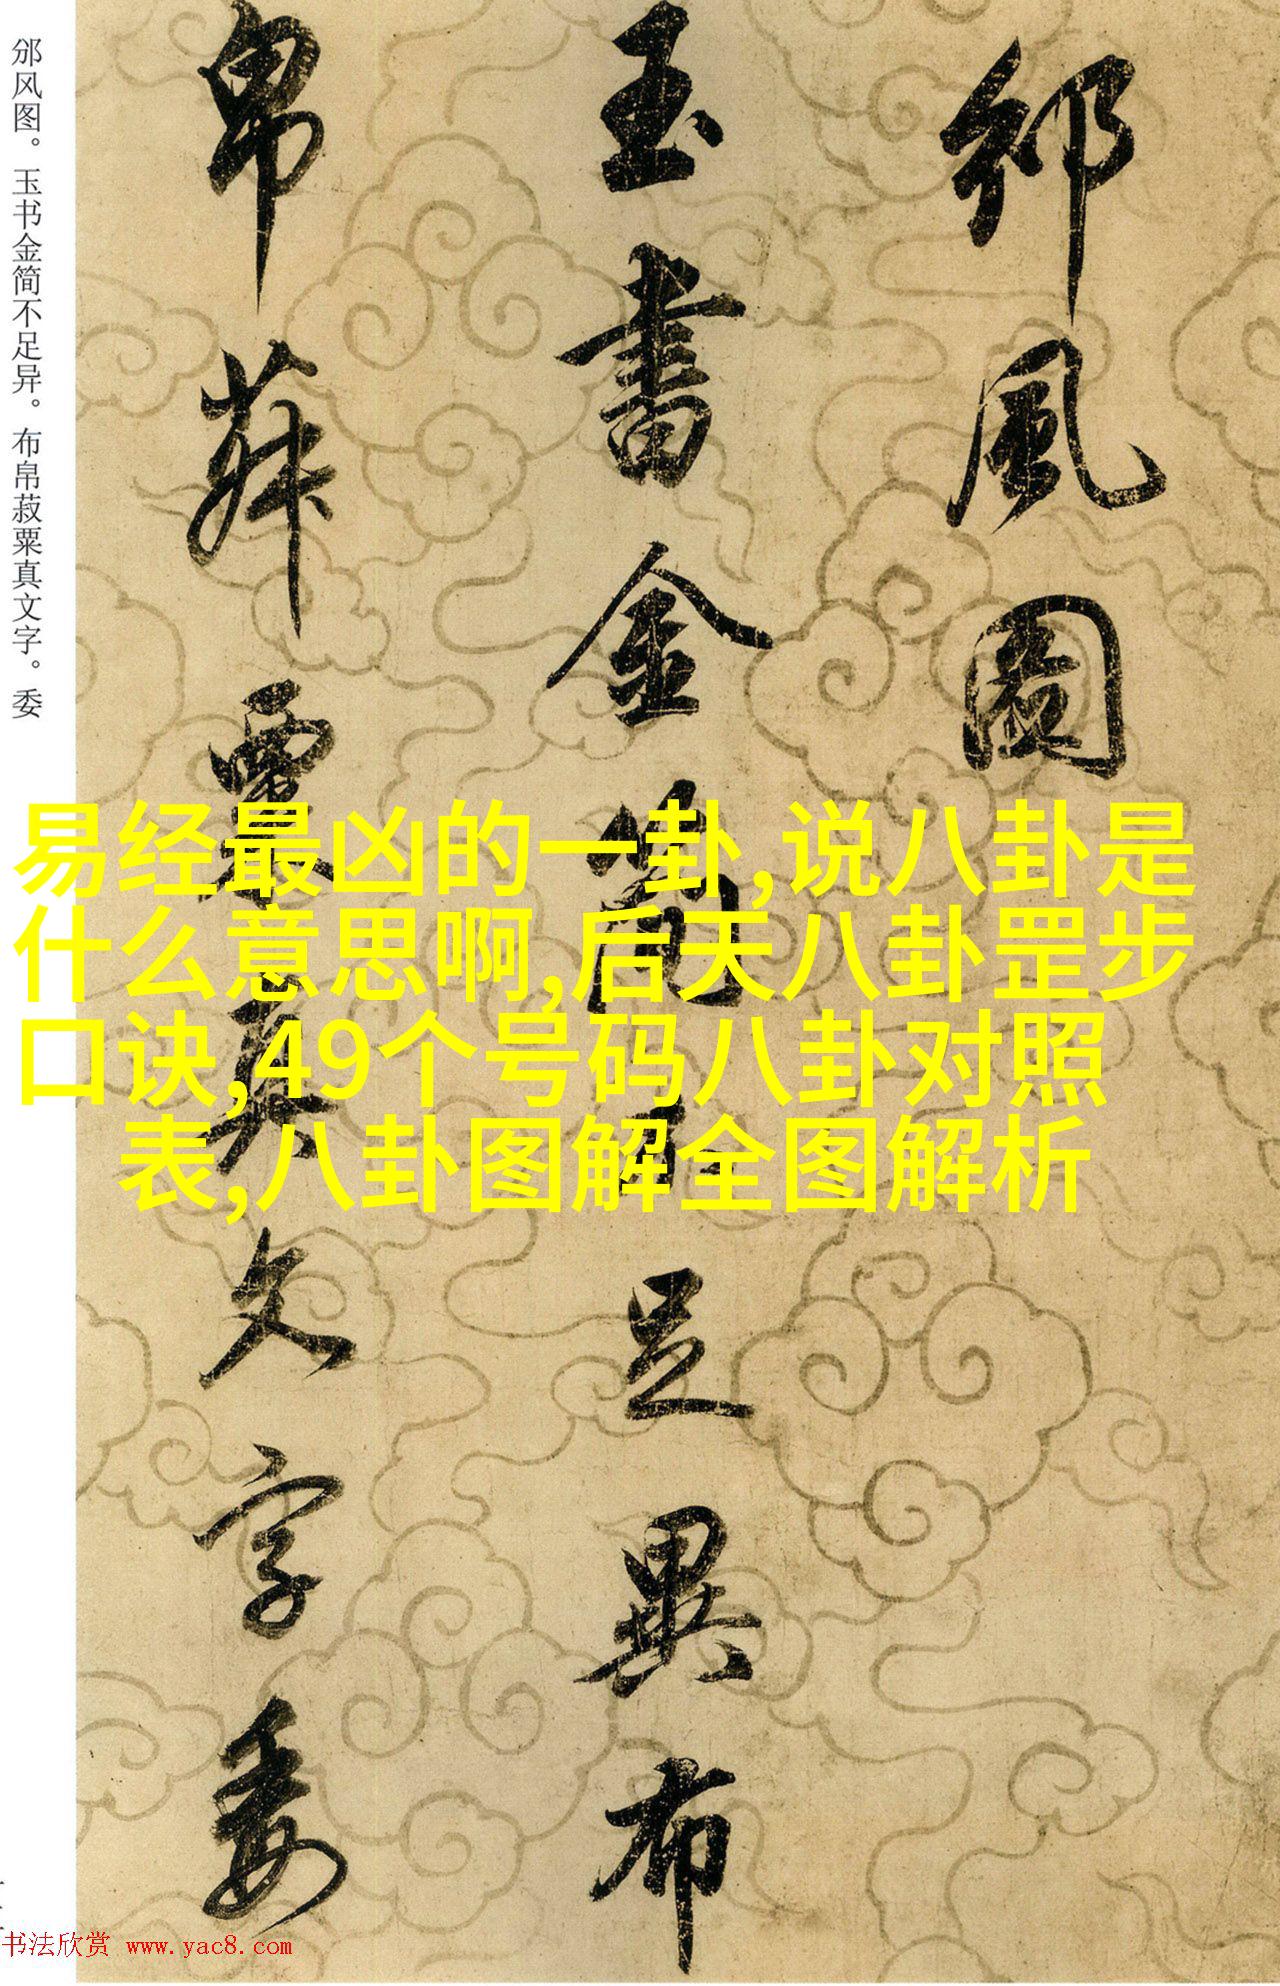 邠風圖
玉書金簡不足異布
帛菽粟真文字委
邠风图。玉书金简不足异。布帛菽粟真文字。委
易经最凶的一卦,说八卦是
什么意思啊,后天八卦罡步
口诀,49个号码八卦对照
表,八卦图解全图解析
书法欣赏 www.yac8.com